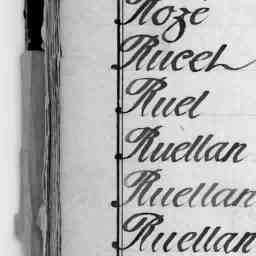 Rozé
Rucet
Ruel
Ruellan
Ruellan
Ruellan